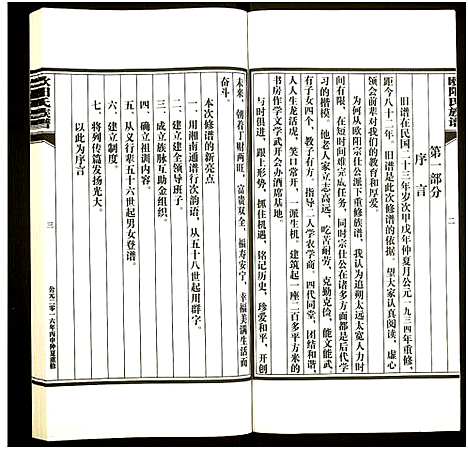 欧阳氏族谱
二
第一部分
序言
旧谱在民国二十三年岁次甲戌年仲夏月公元一九三四年重修
距今八十二年，旧谱是此次修谱的依据。望大家认真阅读、虚心
领会前辈对我们的教育和厚爱。
为何从欧阳宗仕公派下重修族谱，我认为追朔太远太宽人力时
间有限，在短时间难完成任务，同时宗仕公在诸多方面都是后代学
习的楷模。他老人家立志高远，吃苦耐劳、克勤克俭，能文能武，
有子女四个，教子有方。指导二人学农学商。四代同堂，团结和谐，
人人生龙活虎，笑口常开，一派生机。建筑起一座二百多平方米的
书房作学文学武开会办酒席基地。
与时俱进，跟上形势，抓住机遇，铭记历史，珍爱和平，开创
未来，朝着丁财两旺，富贵双全，福寿安宁，幸福美满生活而
奋斗。
本次修谱的新亮点
一 用湘南通谱行次韵语，从五十八世起用群字。
二 建立建全领导班子。
三 成立族脉互助金组织。
四 确立祖训内容。
五 从义行辈五十六世起男女登谱。
六 建立制度。
七 将列传篇发扬光大。
以此为序言
欧阳氏族谱
三
公元二零一六年丙申仲夏重修